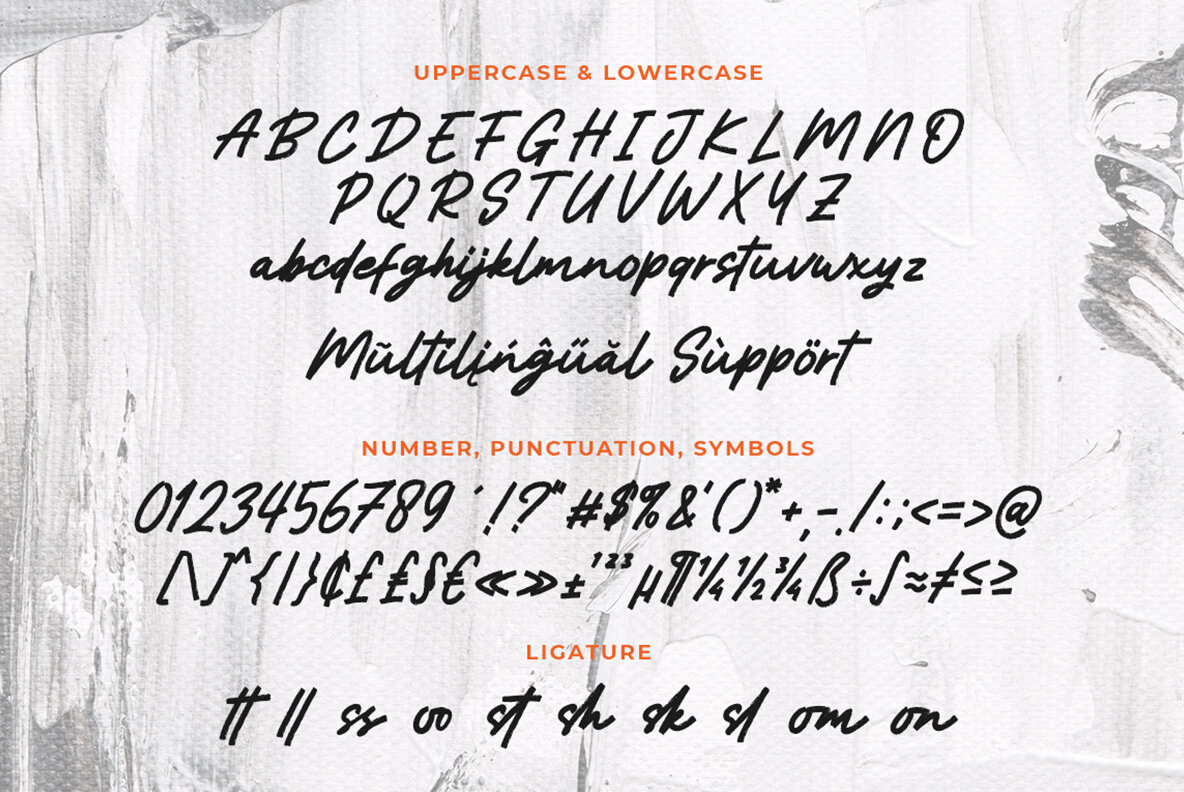 UPPERCASE & LOWERCASE
ABCDEFGHIJKLMNO
PQRSTUVWXYZ
abcdefghijklmnopqrstuvwxyz
Mŭltiļįńĝűăl Sùppört
NUMBER, PUNCTUATION, SYMBOLS
0123456789 ´!?"#$%&'()*+,-./:;<=>@
[\]^{|}¢££§€«»±¹²³µ¶¼½¾ß÷∫≈≠≤≥
LIGATURE
tt ll ss oo st sh sk sl om on